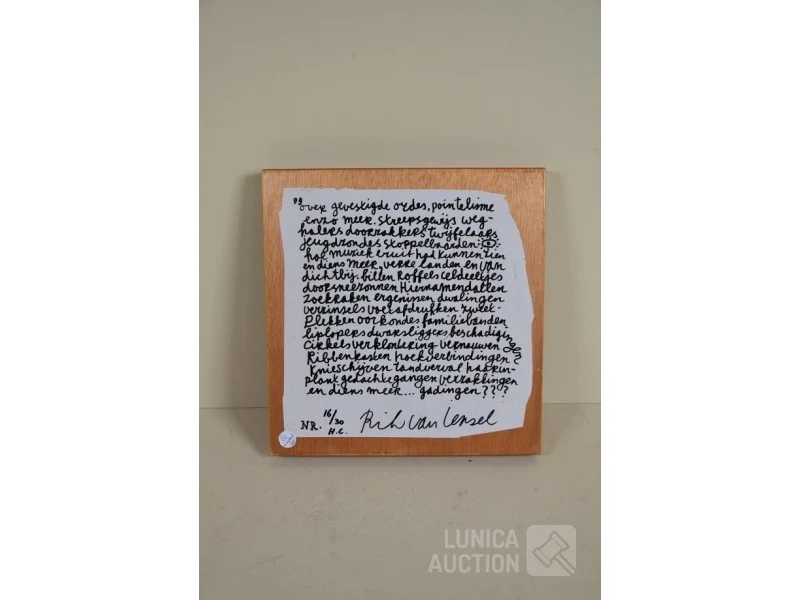 "over gevestigde ordes, pointelisme
enzo meer. streepsgewijs weg-
halers doorzakkers twijfelaars
jeugdzondes stoppelbaarden
hoe muziek eruit had kunnen zien
en diens meer, verre landen en van
dichtbij. billen Roffels celdeeltjes
doorsneezonnen Hiernamendallen
zoekraken ergenissen dwalingen
verzinsels voetafdrukken zweet-
plekken oorkondes familiebanden
liplopers dwarsliggers beschadigingen
cirkels verklontering vernauwen
Ribbenkasten hoekverbindingen
knieschijven tandverval hark in-
plant gedachtegangen verzakkingen
en diens meer... gadingen???
NR. 16/30
H.C.
Rik van Iersel
LUNICA
AUCTION